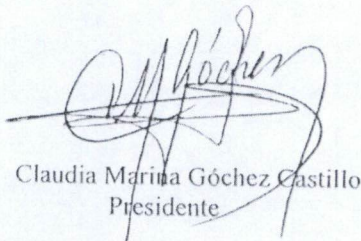 Góchez
Claudia Marina Góchez Castillo
Presidente